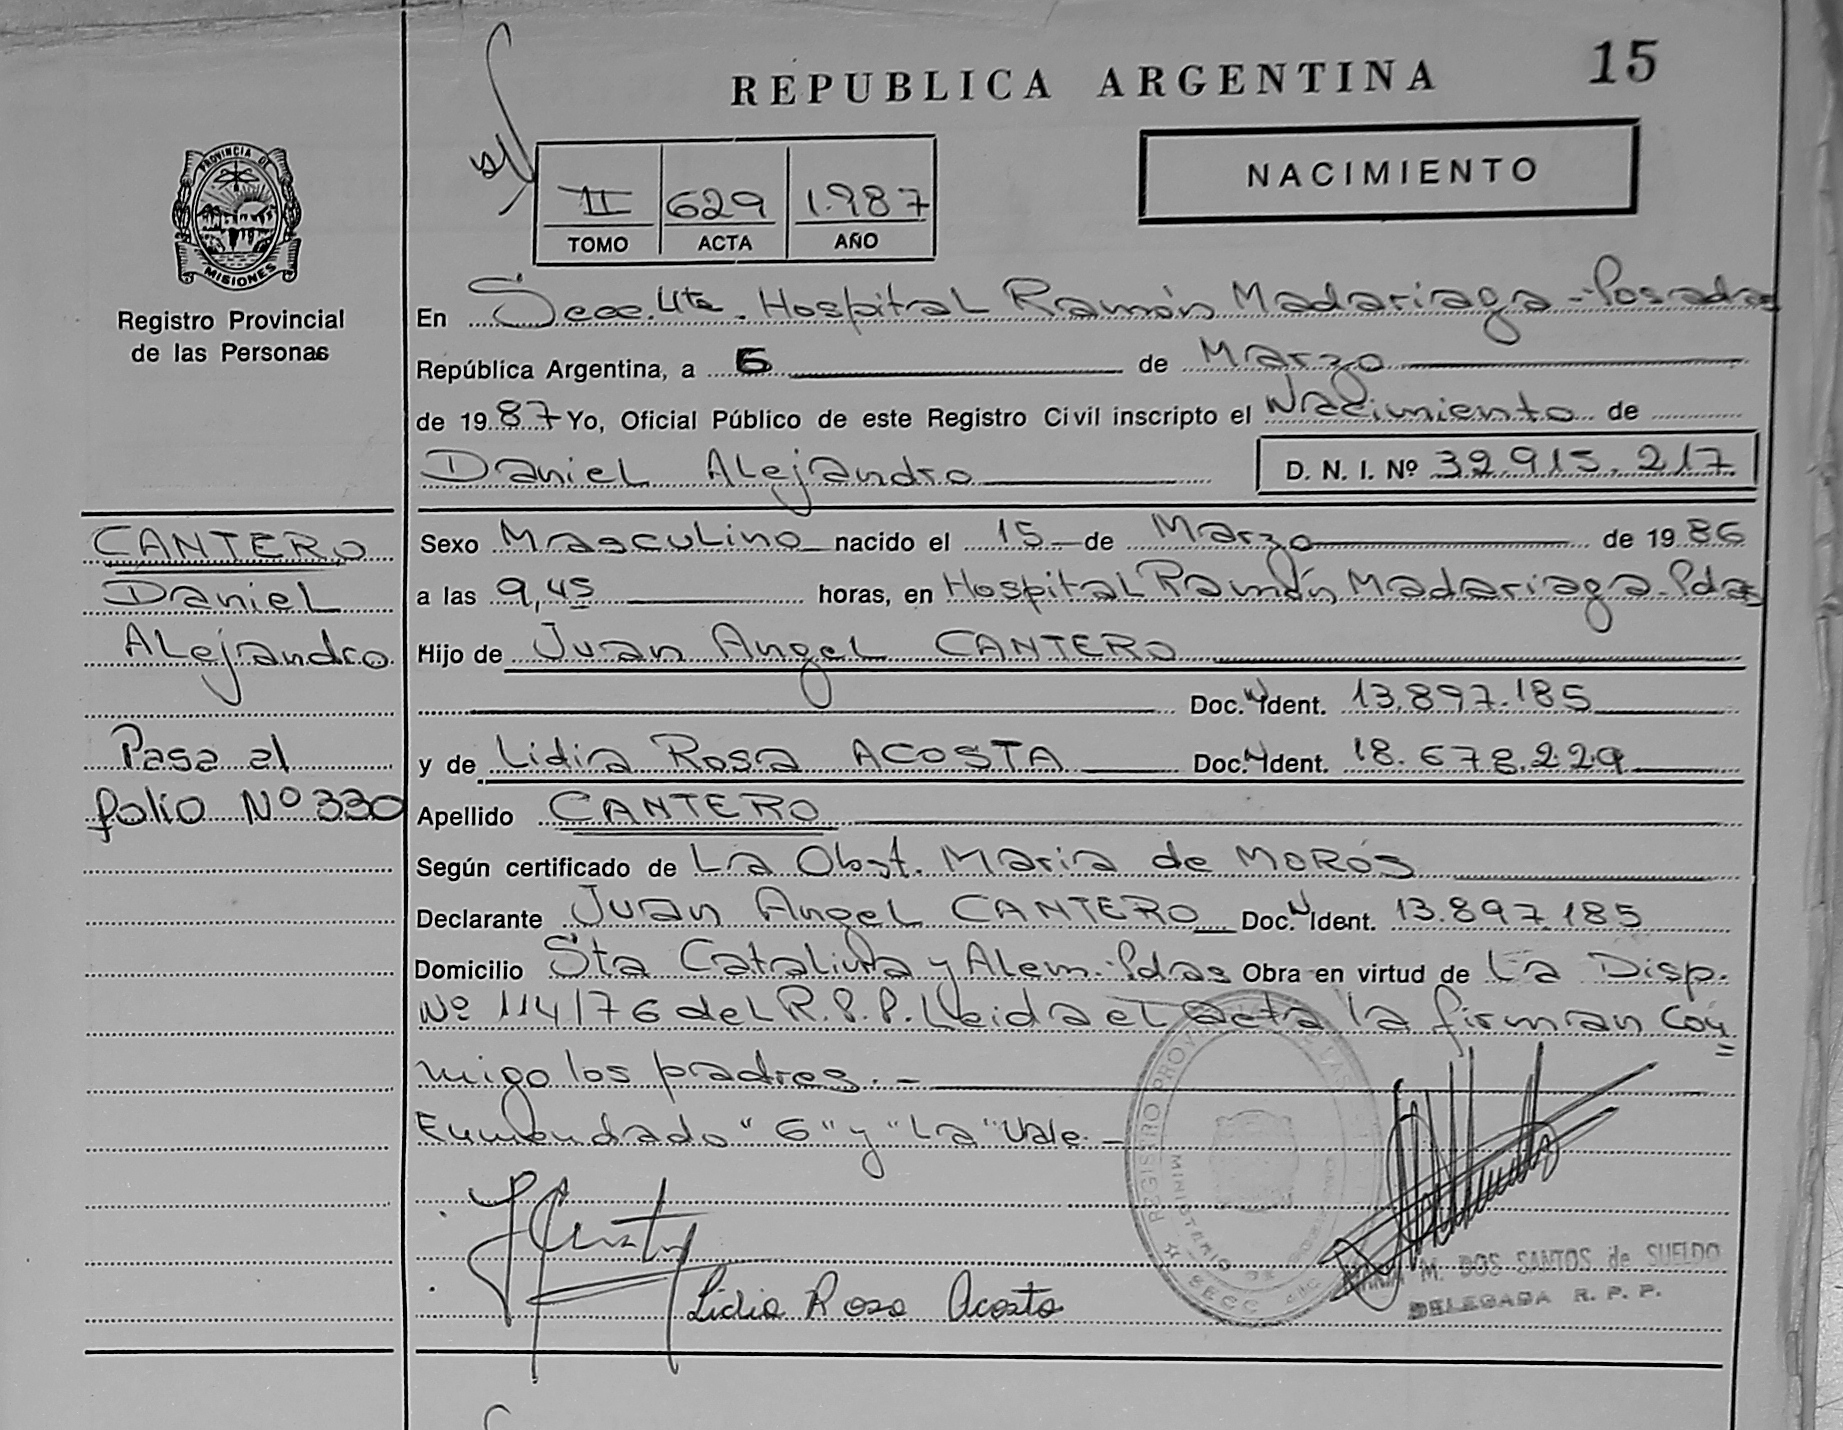 REPUBLICA ARGENTINA
15
NACIMIENTO
II 629 1.987
TOMO ACTA AÑO
PROVINCIA DE
MISIONES
Registro Provincial
de las Personas
En Secc. 4ta. Hospital Ramón Madariaga - Posadas
República Argentina, a 6 de Marzo
de 1987 Yo, Oficial Público de este Registro Civil inscripto el Nacimiento de
Daniel Alejandro D. N. I. Nº 32.915.217
CANTERO
Daniel
Alejandro
Pasa al
folio Nº 330
Sexo Masculino nacido el 15 de Marzo de 1986
a las 9,45 horas, en Hospital Ramón Madariaga. Pdas
Hijo de Juan Angel CANTERO
Doc. Ident. 13.897.185
y de Lidia Rosa ACOSTA Doc. Ident. 18.678.229
Apellido CANTERO
Según certificado de La Obst. Maria de MOROS
Declarante Juan Angel CANTERO Doc. Ident. 13.897.185
Domicilio Sta Catalina y Alem. Pdas Obra en virtud de La Disp.
Nº 114/76 del R.P.P. Leida el acta la firman con
migo los padres. -
Enmendado "6" y "La" Vale. -
Lidia Rosa Acosta
REGISTRO
MINISTERIO DE
SECC.
M. DOS SANTOS de SUELDO
DELEGADA R. P. P.